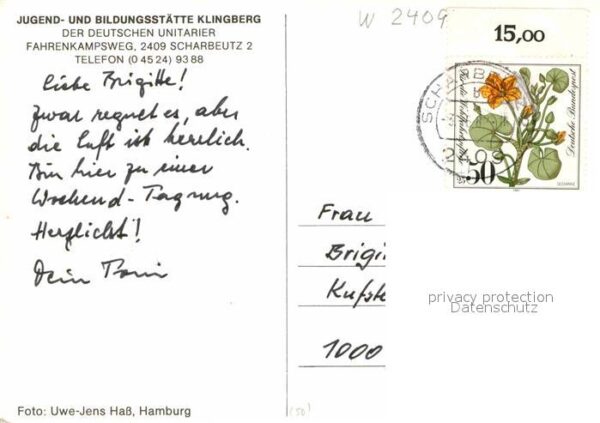 JUGEND- UND BILDUNGSSTÄTTE KLINGBERG
DER DEUTSCHEN UNITARIER
FAHRENKAMPSWEG, 2409 SCHARBEUTZ 2
TELEFON (0 45 24) 93 88
Liebe Brigitte!
Zwar regnet es, aber
die Luft ist herrlich.
Bin hier zu einer
Wochend-Tagung.
Herzlichst!
Dein
Foto: Uwe-Jens Haß, Hamburg
W 2409
15,00
SCHARB
2409
50
Deutsche Bundespost
Frau
Brigi
Kufste
1000
privacy protection
Datenschutz
(50)